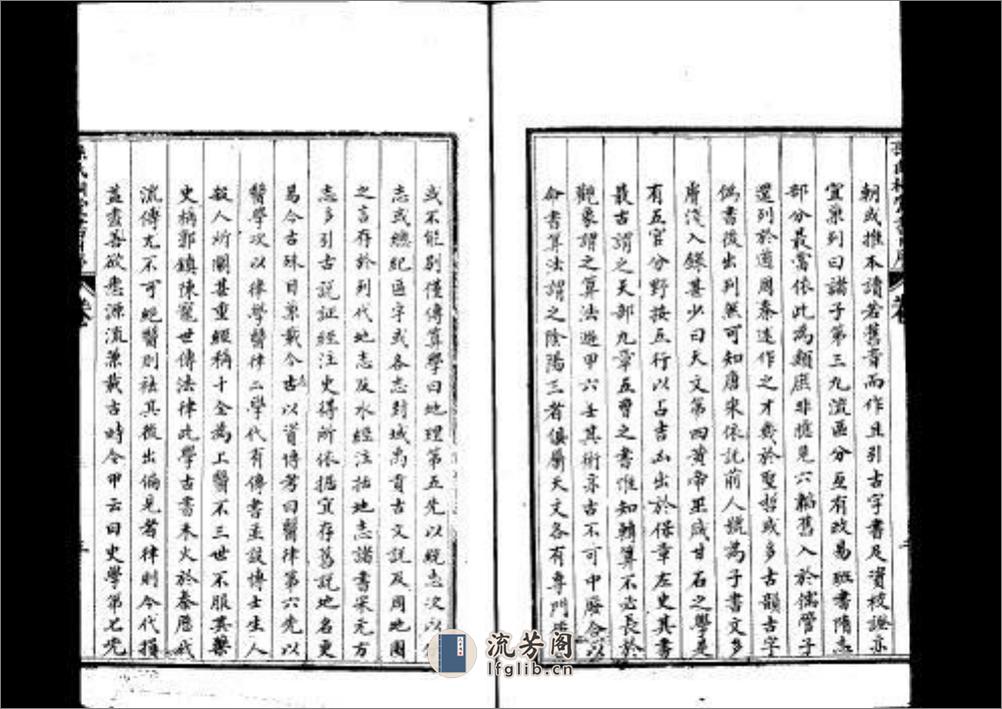 朝或推本讀若舊音而作且引古字書足資校證亦
宜泉列曰諸子第三九流區分互有改易班書隋志
部分最當依此為類庶非臆見六韜舊入於儒管子
還列於道周秦述作之才幾於聖哲或多古韻古字
偽書後出列無可知唐宋依託前人號為子書文多
膚淺入錄甚少曰天文第四黃帝巫咸甘石之學是
有五官分野按五行以占吉凶出於保章左史其書
最古謂之天部九章五曹之書惟知輯算不必長於
觀象謂之算法遁甲六壬其術亦古不可中廢合以
命書算法謂之陰陽三者俱屬天文各有專門
或不能別僅傳算學曰地理第五先以統志次以
志或總紀區宇或各志封域禹貢古文說及周地圖
之言存於列代地志及水經注括地志諸書宋元方
志多引古說証經注史得所依據宜存舊說地名更
易今古殊目泉載今古以資博考曰醫律第六先以
醫學次以律學醫律二學代有傳書並設博士生人
殺人所關甚重經稱十全為上醫不三世不服其藥
史稱郭鎮陳寵世傳法律此學古書未火於秦歷代
流傳尤不可絕醫則祛其後出偏見者律則今代損
益盡善欲悉源流兼載古時令甲云曰史學第七先
流芳阁
lfglib.cn